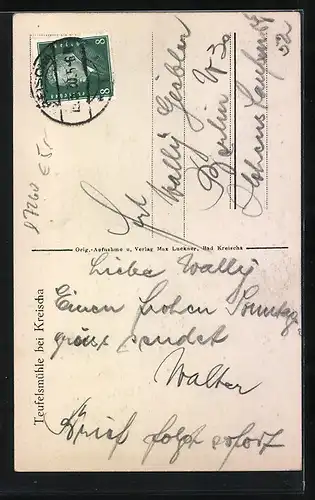 8 8
Frl.
Wally Gäbler
Berlin W 30
Hohenstaufenstr
52
D 7260 € 5,-
Orig.-Aufnahme u. Verlag Max Luckner, Bad Kreischa
Teufelsmühle bei Kreischa
Liebe Wally
Einen frohen Sonntag
gruss sendet
Walter
Brief folgt sofort